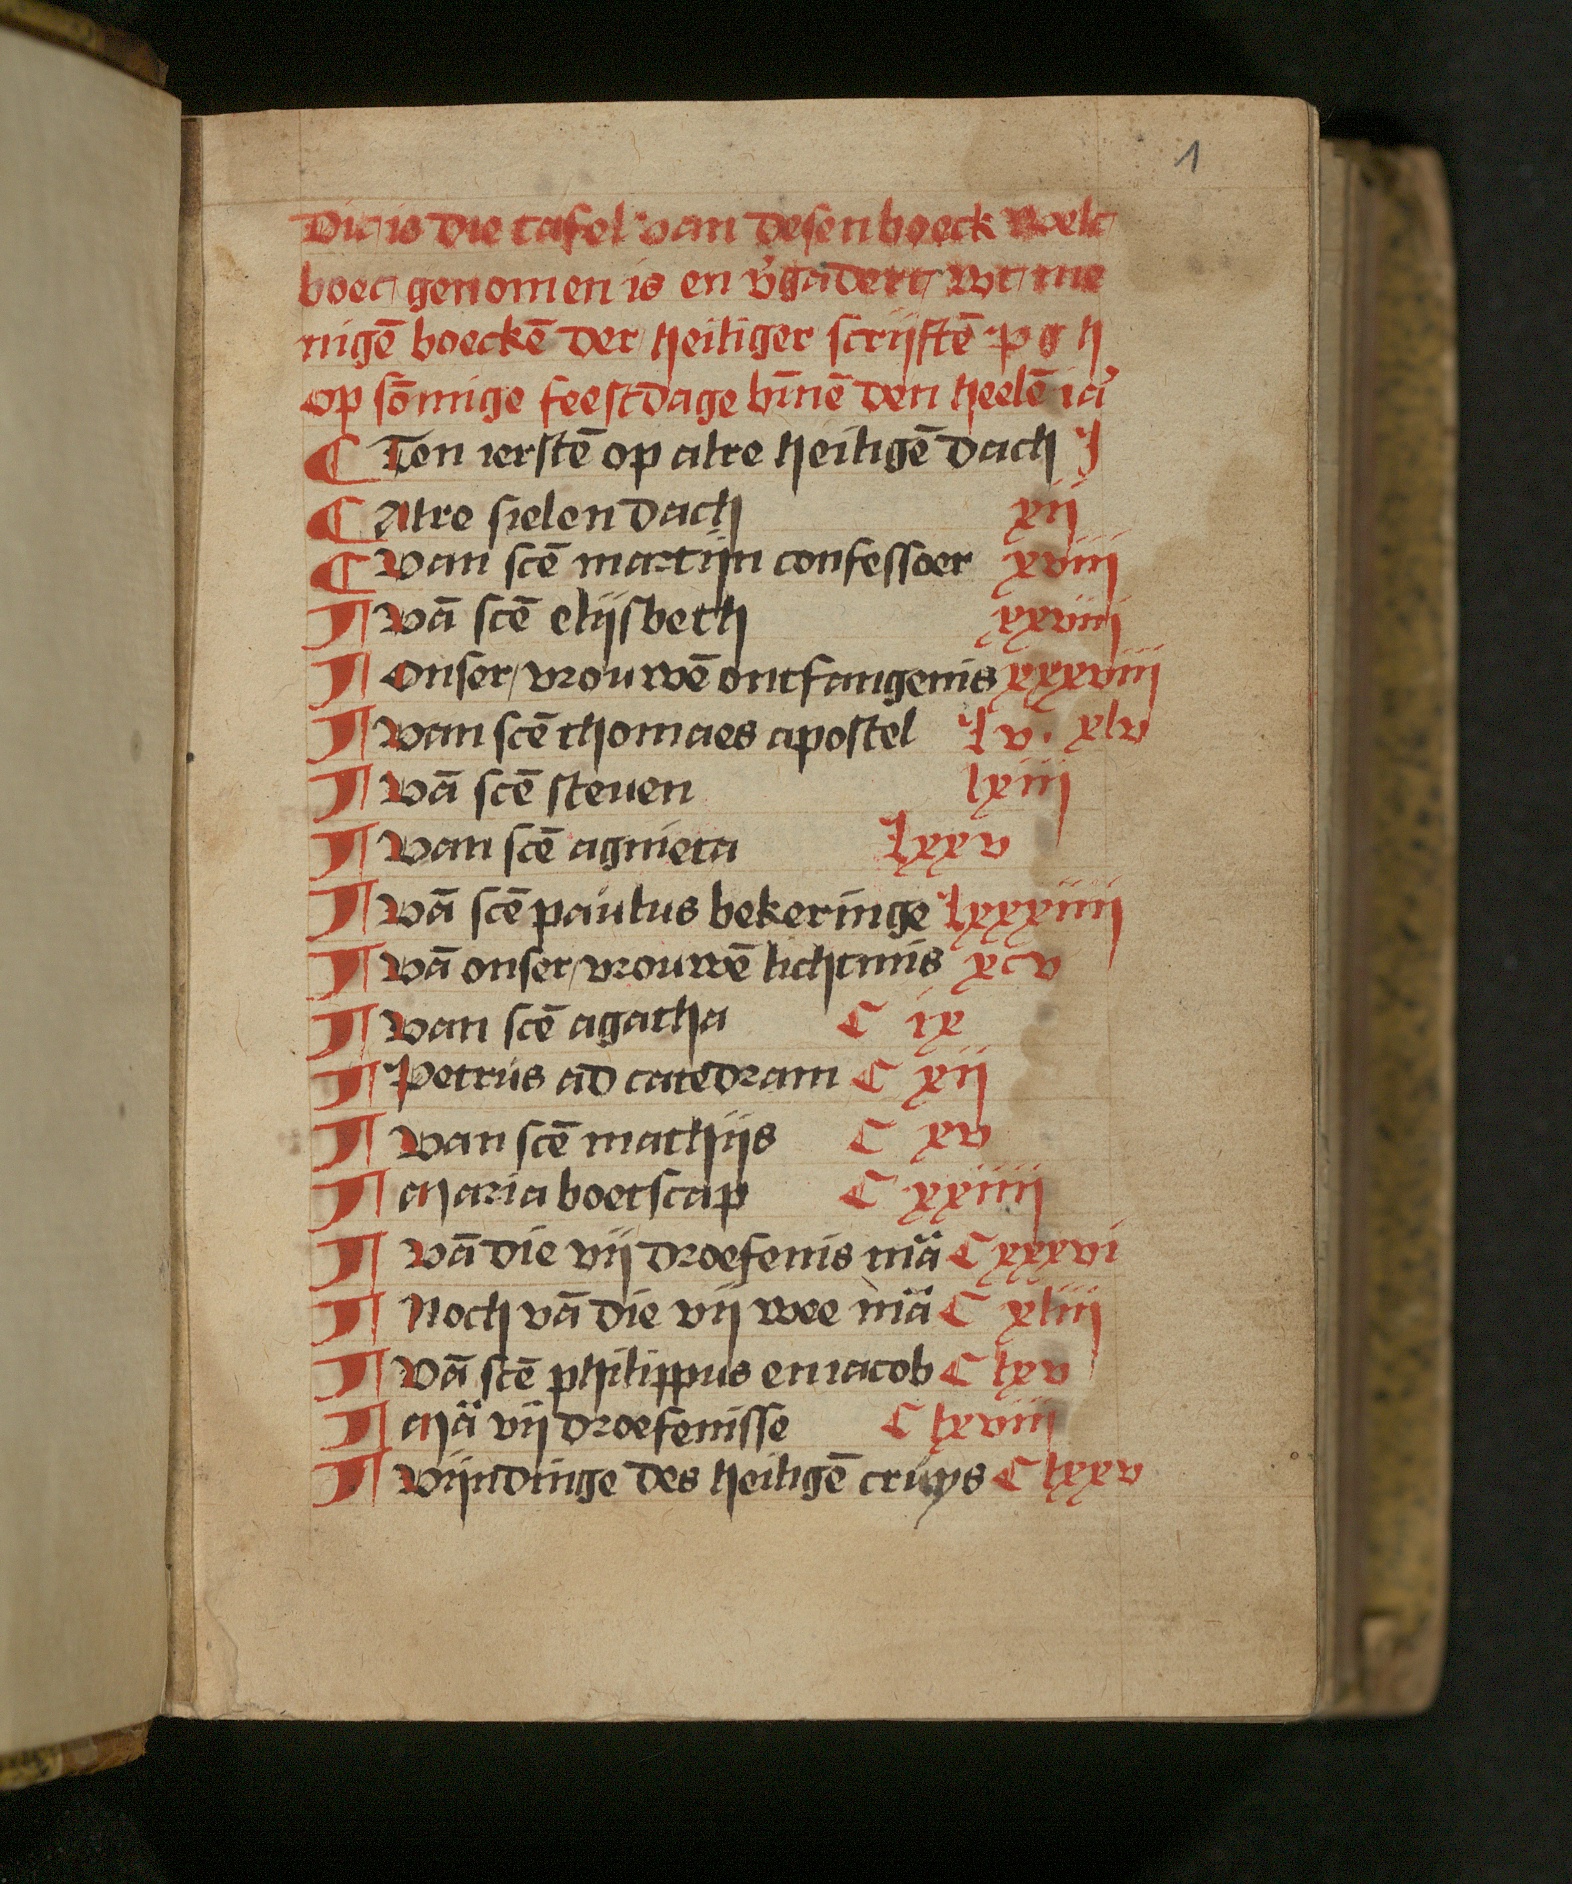 1
Dit is die tafel van desen boeck welc
boec genomen is en v̓gadert wt me
nigē boeckē der heiliger scrijftē p g h
op sōmige feestdage bīnē den heelē iae̓
¶ Ten iersten̄ op alre heiligē dach J
¶ Alre sielen dach xij
¶ Van scē martijn confessoer xviij
¶ Vā scē elijsbeth xxviij
¶ Onser vrouwē ontfangenis xxxviij
¶ Van scē thomaes apostel lv. xlv
¶ Vā scē steuen lxiij
¶ Van scē agnieta lxxv
¶ Vā scē paulus bekeringe lxxxiiij
¶ Vā onser vrouwē lichtmis xcv
¶ Van scē agatha C ix
¶ Petrus ad catedram C xij
¶ Van scē mathijs C xv
¶ Maria boetscap C xxiiij
¶ Vā die vij droefenis mā C xxxvi
¶ Noch vā die vij wee mā C xliij
¶ Vā scē philippus en iacob C lxv
¶ Mā vij droefenisse C lxviij
¶ Vijndinge des heiligē cruys C lxxv